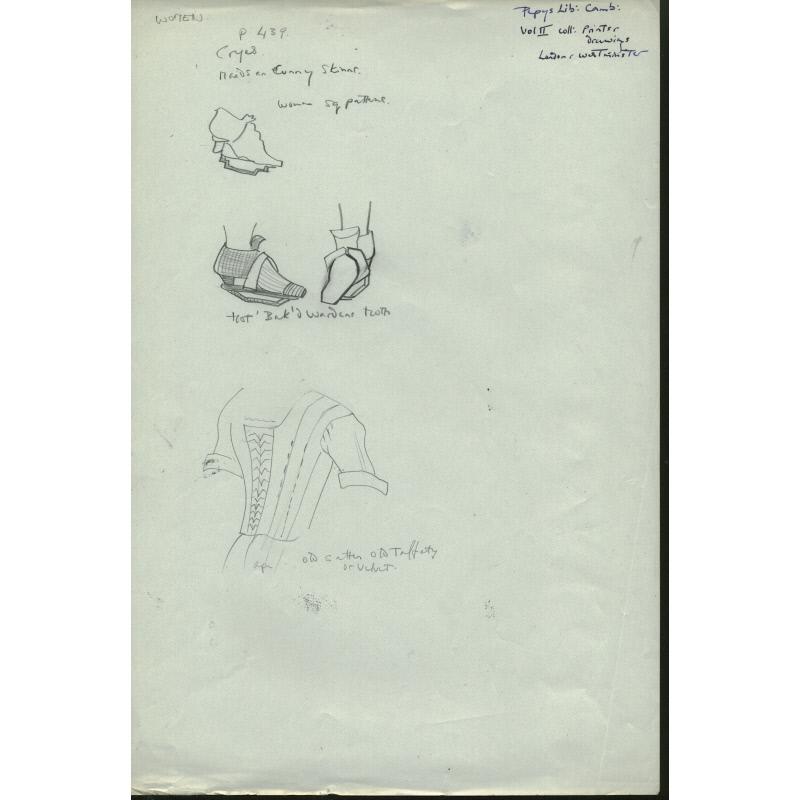 WOMEN
Pepys Lib: Camb:
Vol II coll: Printer
Drawings
London & Westminster
P 439.
Cryes.
Maids on Cunny Skinns.
Women sq pattens.
Hot Bak'd Wardens Hott
old Satten old Taffety
or Velvet.